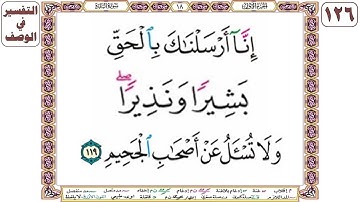 التفسير
في
الوصف
١٢٦
١٨
إِنَّآ أَرْسَلْنَـٰكَ بِٱلْحَقِّ
بَشِيرًا وَنَذِيرًا ۖ
وَلَا تُسْـَٔلُ عَنْ أَصْحَـٰبِ ٱلْجَحِيمِ ١١٩